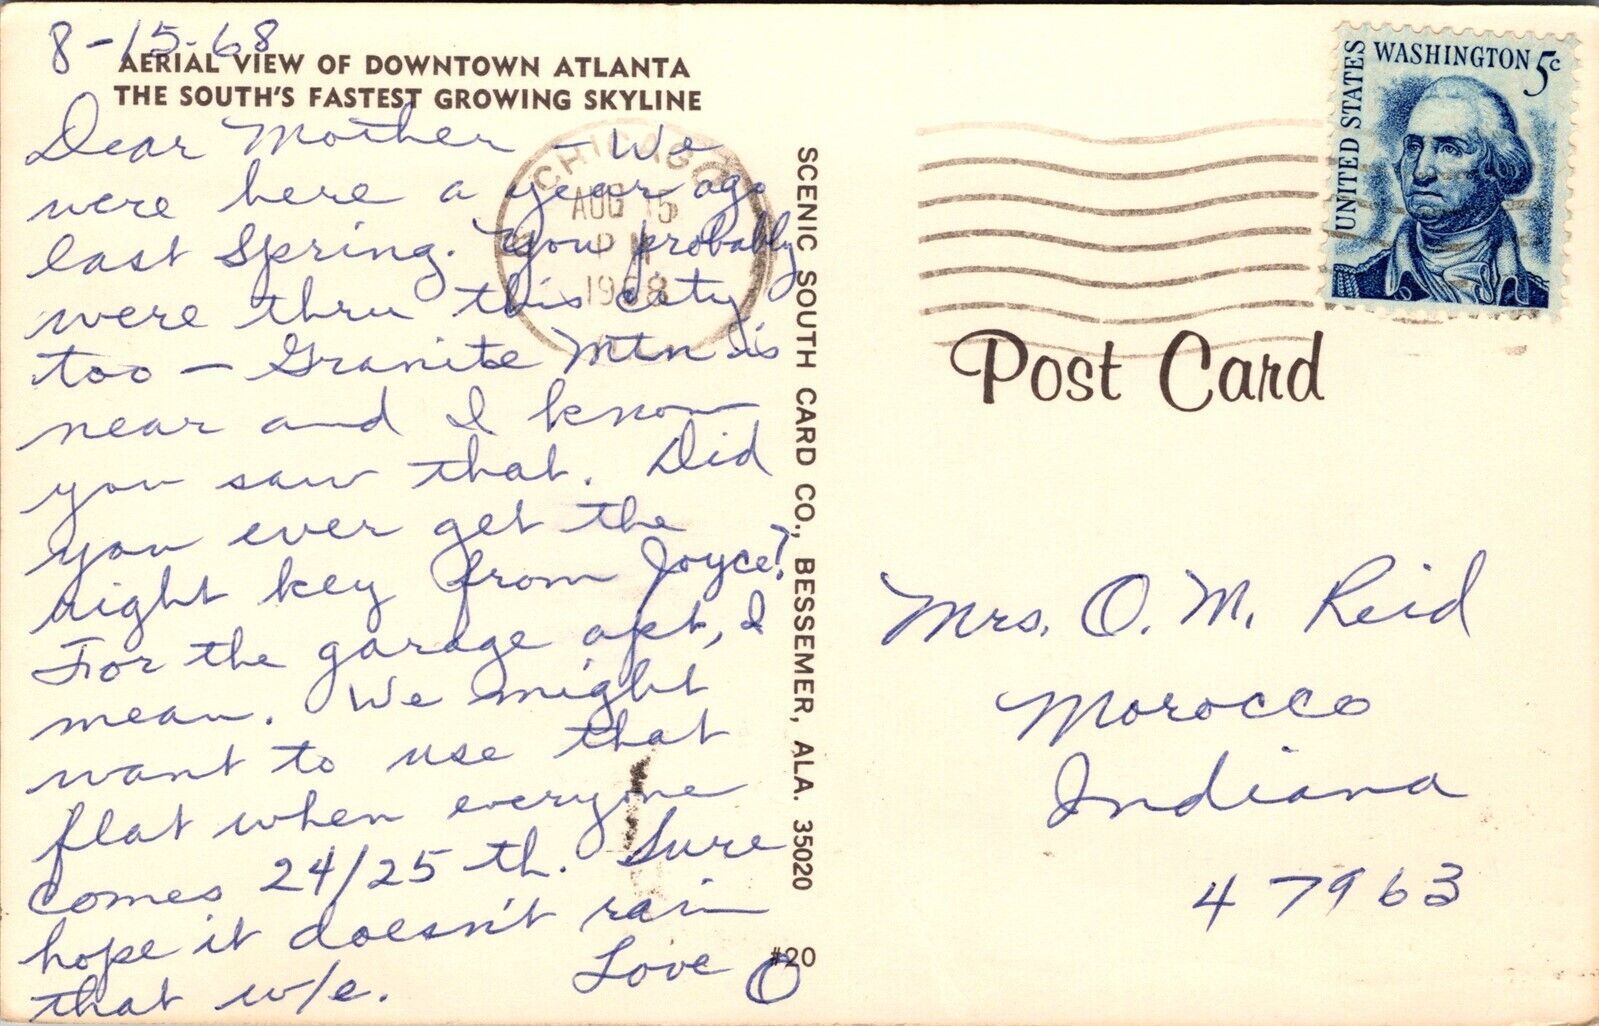 8-15-68
AERIAL VIEW OF DOWNTOWN ATLANTA
THE SOUTH'S FASTEST GROWING SKYLINE
Dear Mother - We
were here a year ago
last Spring. You probably
were thru this city
too - Granite Mtn is
near and I know
you saw that. Did
you ever get the
right key from Joyce?
For the garage apt, I
mean. We might
want to use that
flat when everyone
comes 24/25 th. Sure
hope it doesn't rain
that w/e. Love O
SCENIC SOUTH CARD CO., BESSEMER, ALA. 35020
#20
CHICAGO
AUG 15
PM
1968
UNITED STATES
WASHINGTON 5c
Post Card
Mrs. O. M. Reid
Morocco
Indiana
47963